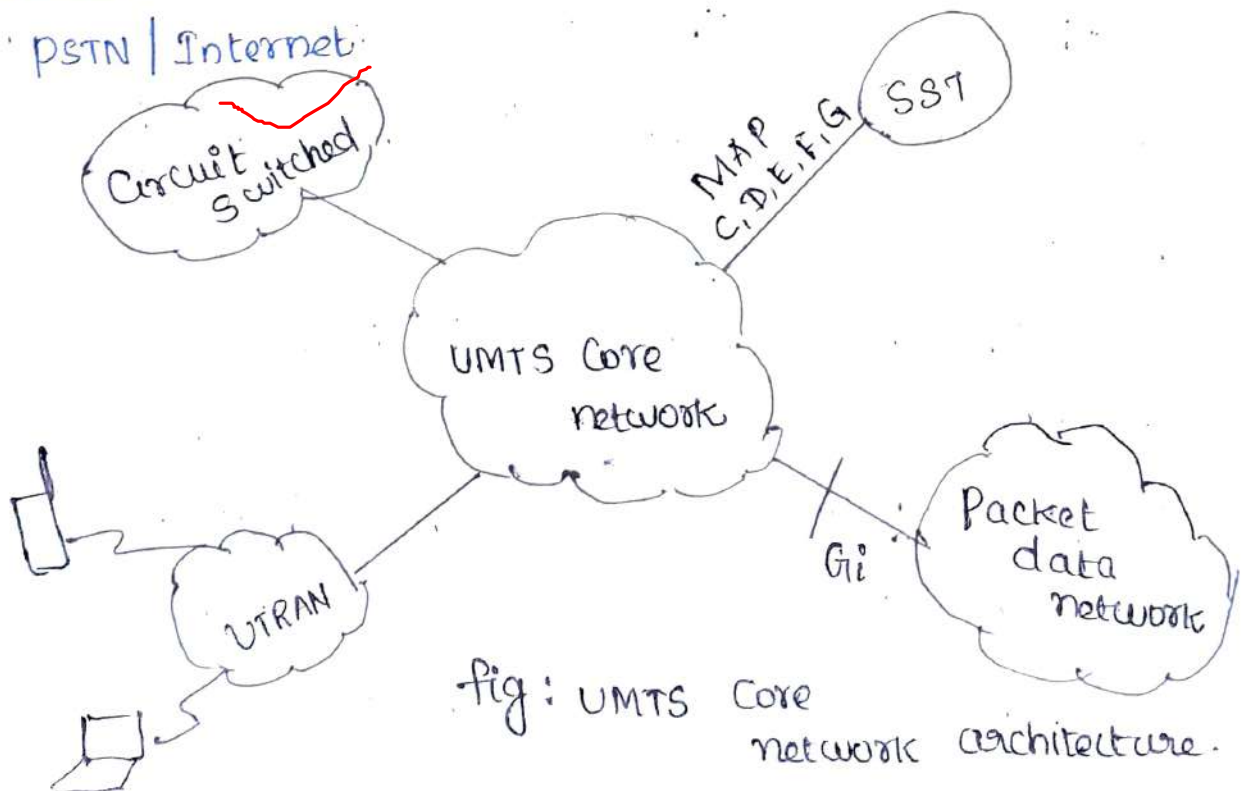 PSTN | Internet
Circuit
switched
SS7
MAP
C, D, E, F, G
UMTS Core
network
Gi
Packet
data
network
UTRAN
fig: UMTS Core
network architecture.